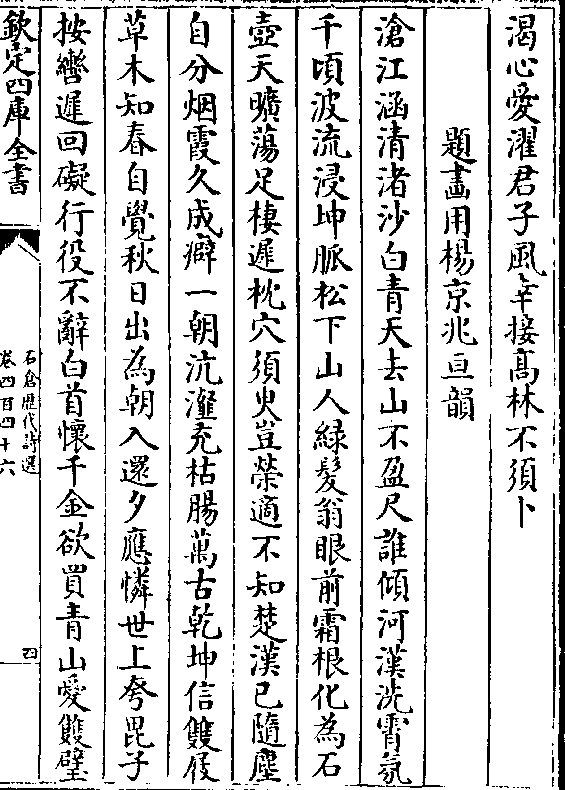 渴心愛濯君子風幸接髙林不須卜
題畫用楊京兆亘韻
滄江涵清渚沙白青天去山不盈尺誰傾河漢洗霄氛
千頃波流浸坤脈松下山人緑髮翁眼前霜根化為石
壺天曠蕩足棲遲枕穴須臾豈榮適不知楚漢已隨塵
自分烟霞久成癖一朝沆瀣充枯腸萬古乾坤信雙屐
草木知春自覺秋日出為朝入還夕應憐世上夸毘子
按轡遲回礙行役不辭白首懷千金欲買青山愛雙璧
欽定四庫全書
石倉歴代詩選
卷四百四十六
四